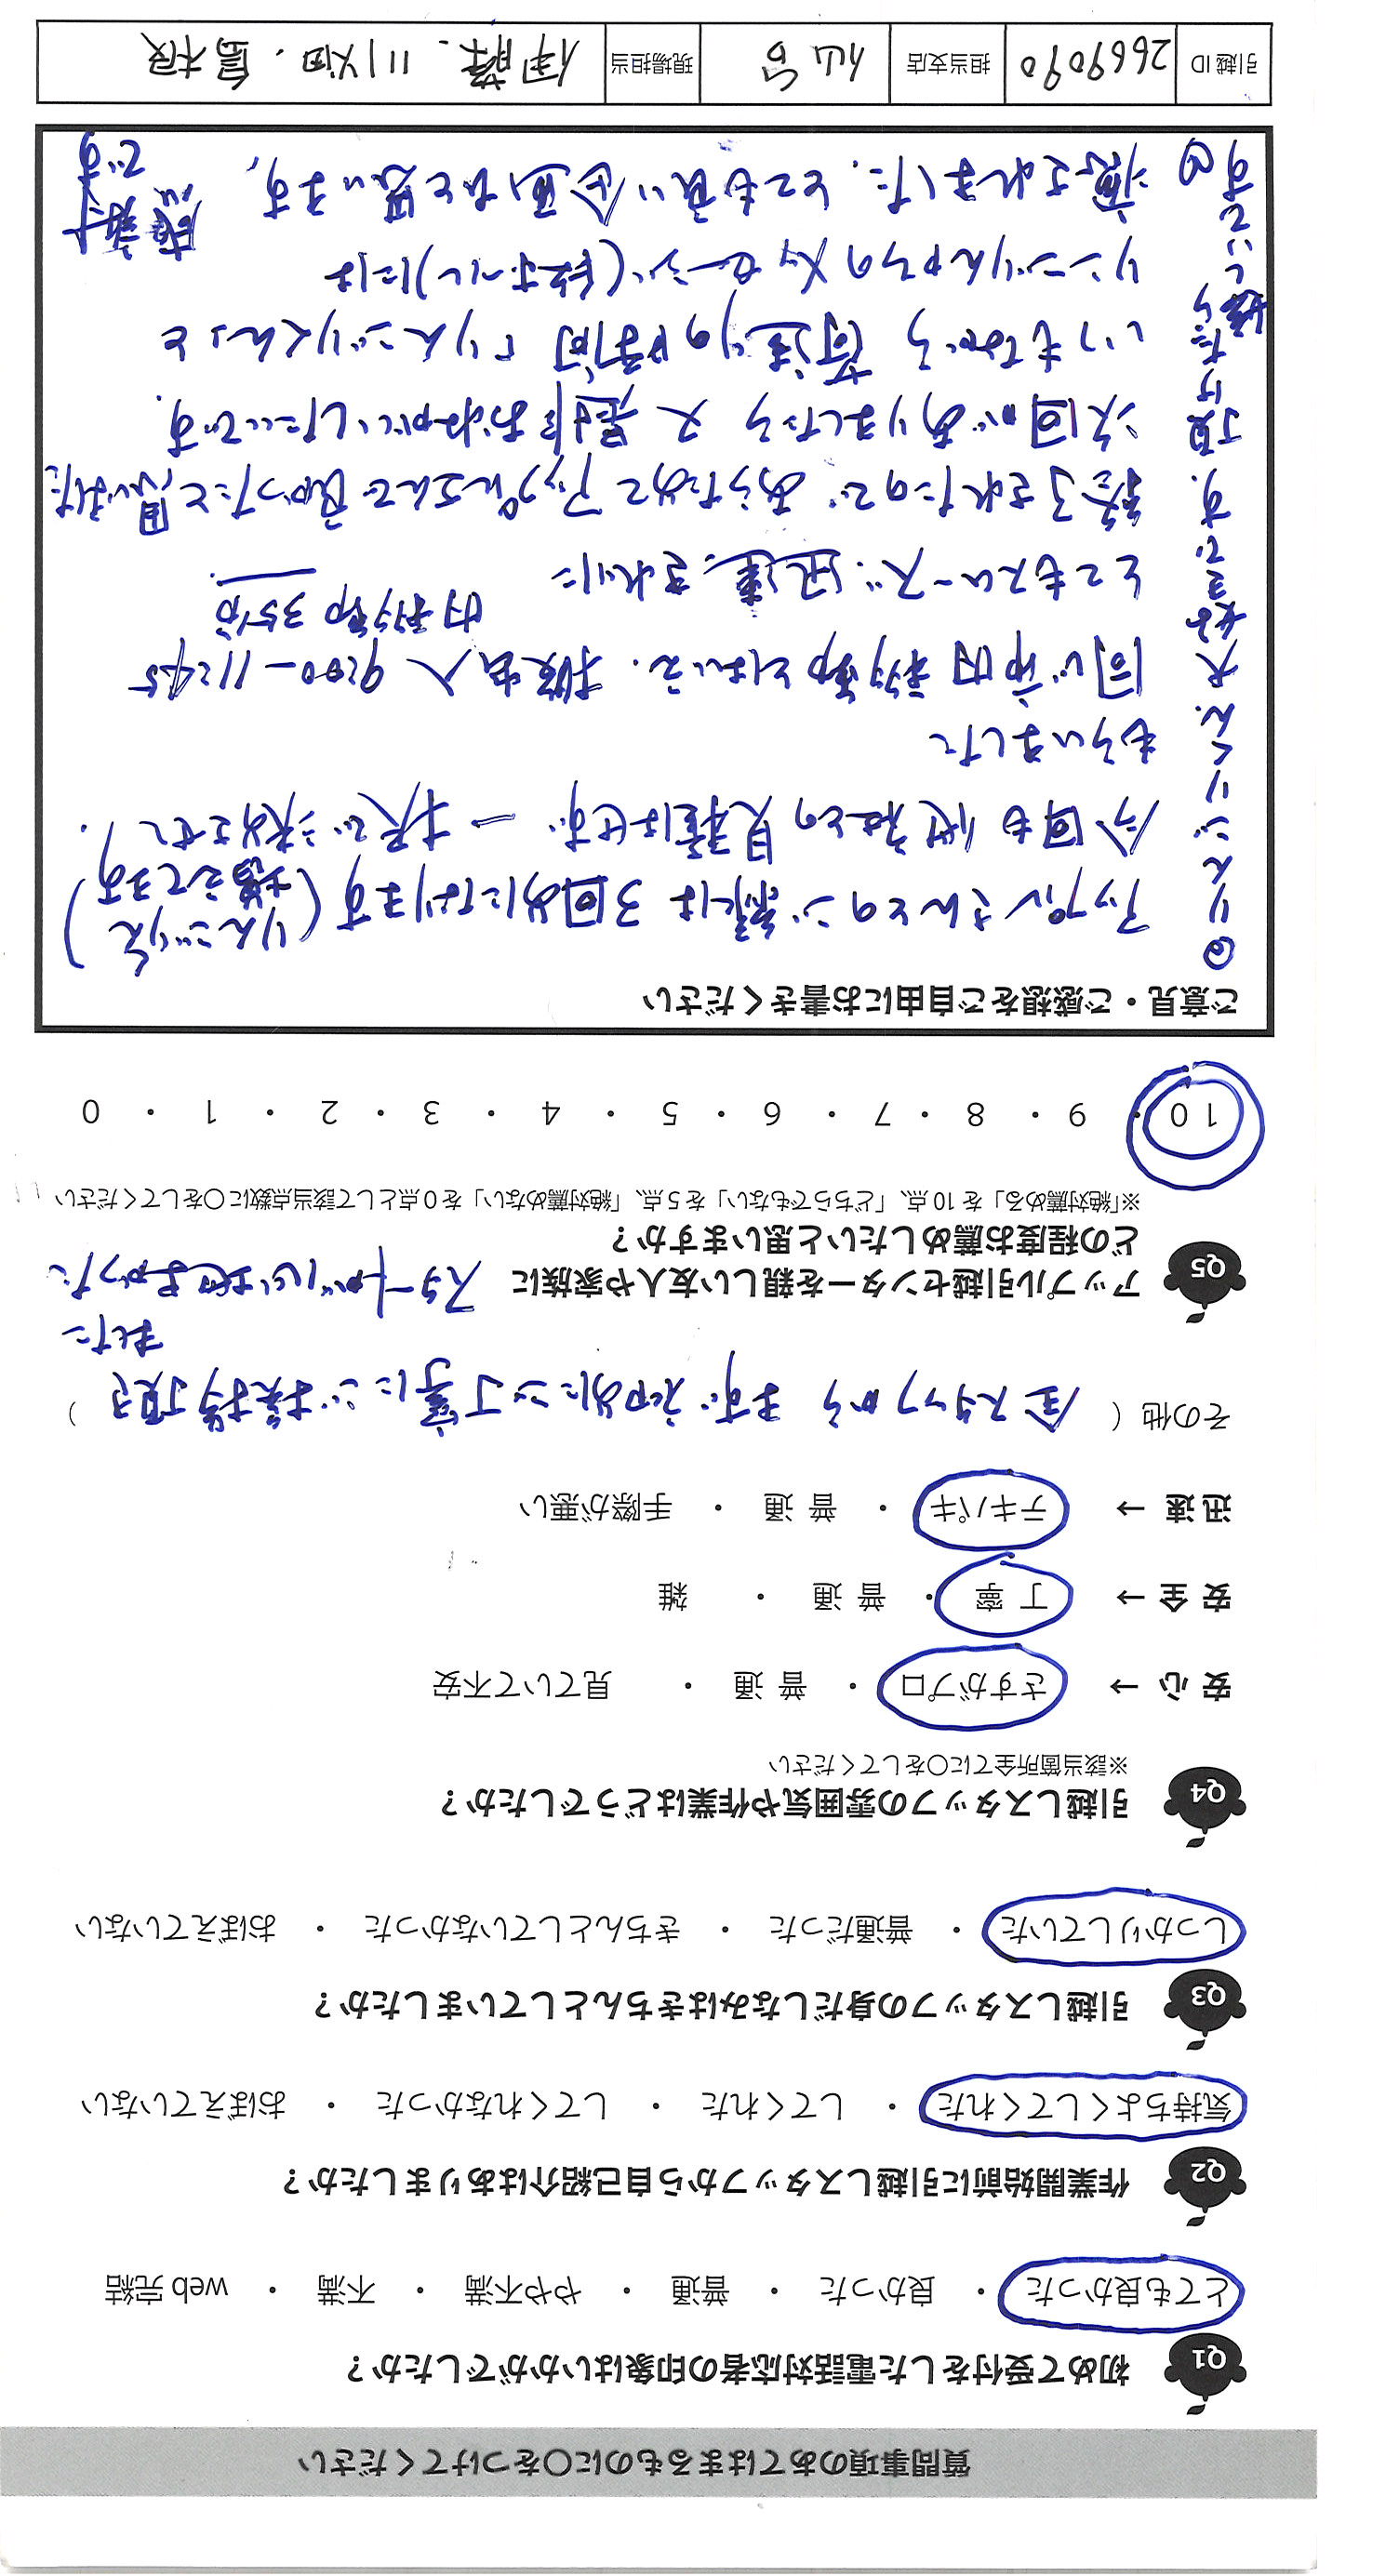 質問事項のあてはまるものに○をつけてください
Q1 初めて受付をした電話対応者の印象はいかがでしたか？
とても良かった ・ 良かった ・ 普通 ・ やや不満 ・ 不満 ・ web 完結
Q2 作業開始前に引越しスタッフから自己紹介はありましたか？
気持ちよくしてくれた ・ してくれた ・ してくれなかった ・ おぼえていない
Q3 引越しスタッフの身だしなみはきちんとしていましたか？
しっかりしていた ・ 普通だった ・ きちんとしていなかった ・ おぼえていない
Q4 引越しスタッフの雰囲気や作業はどうでしたか？
※該当箇所全てに○をしてください
安 心 → さすがプロ ・ 普 通 ・ 見ていて不安
安 全 → 丁 寧 ・ 普 通 ・ 雑
迅 速 → テキパキ ・ 普 通 ・ 手際が悪い
その他（ 全スタッフから まず初めにご丁寧にご挨拶頂き ）
ました
スタートが心地よかった
Q5 アップル引越センターを親しい友人や家族に
どの程度お薦めしたいと思いますか？
※「絶対薦める」を 10 点、「どちらでもない」を 5 点、「絶対薦めない」を 0 点として該当点数に○をしてください
10 ・ 9 ・ 8 ・ 7 ・ 6 ・ 5 ・ 4 ・ 3 ・ 2 ・ 1 ・ 0
ご意見・ご感想をご自由にお書きください
アップルさんとのご縁は 3回めになります（りんごりくん
増えてます）
今回も他社との見積はせず 一択で決めさせて
もらいました
同じ市内移動とはいえ、搬出入 9:00-11:45
内移動 35分
とてもスムーズ、迅速、きれいに
終了されたので あらためてアップルさんで良かったと思いました
次回がありましたら 又 是非おねがいしたいです。
いつもながら 荷造りの時間「りんごりくん」と
リンゴりんからのメッセージ(段ボール)には
癒されました。とても良い企画だと思います。
感謝
です
◎りんごりくん、大好きです。頂けたら嬉しいです
引越 ID 2669090 担当支店 仙台 現場担当 伊藤、川畑、島根